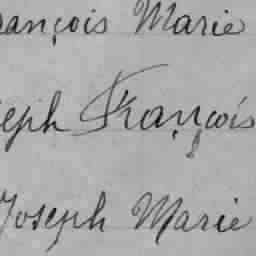 rançois Marie
eph François
Joseph Marie